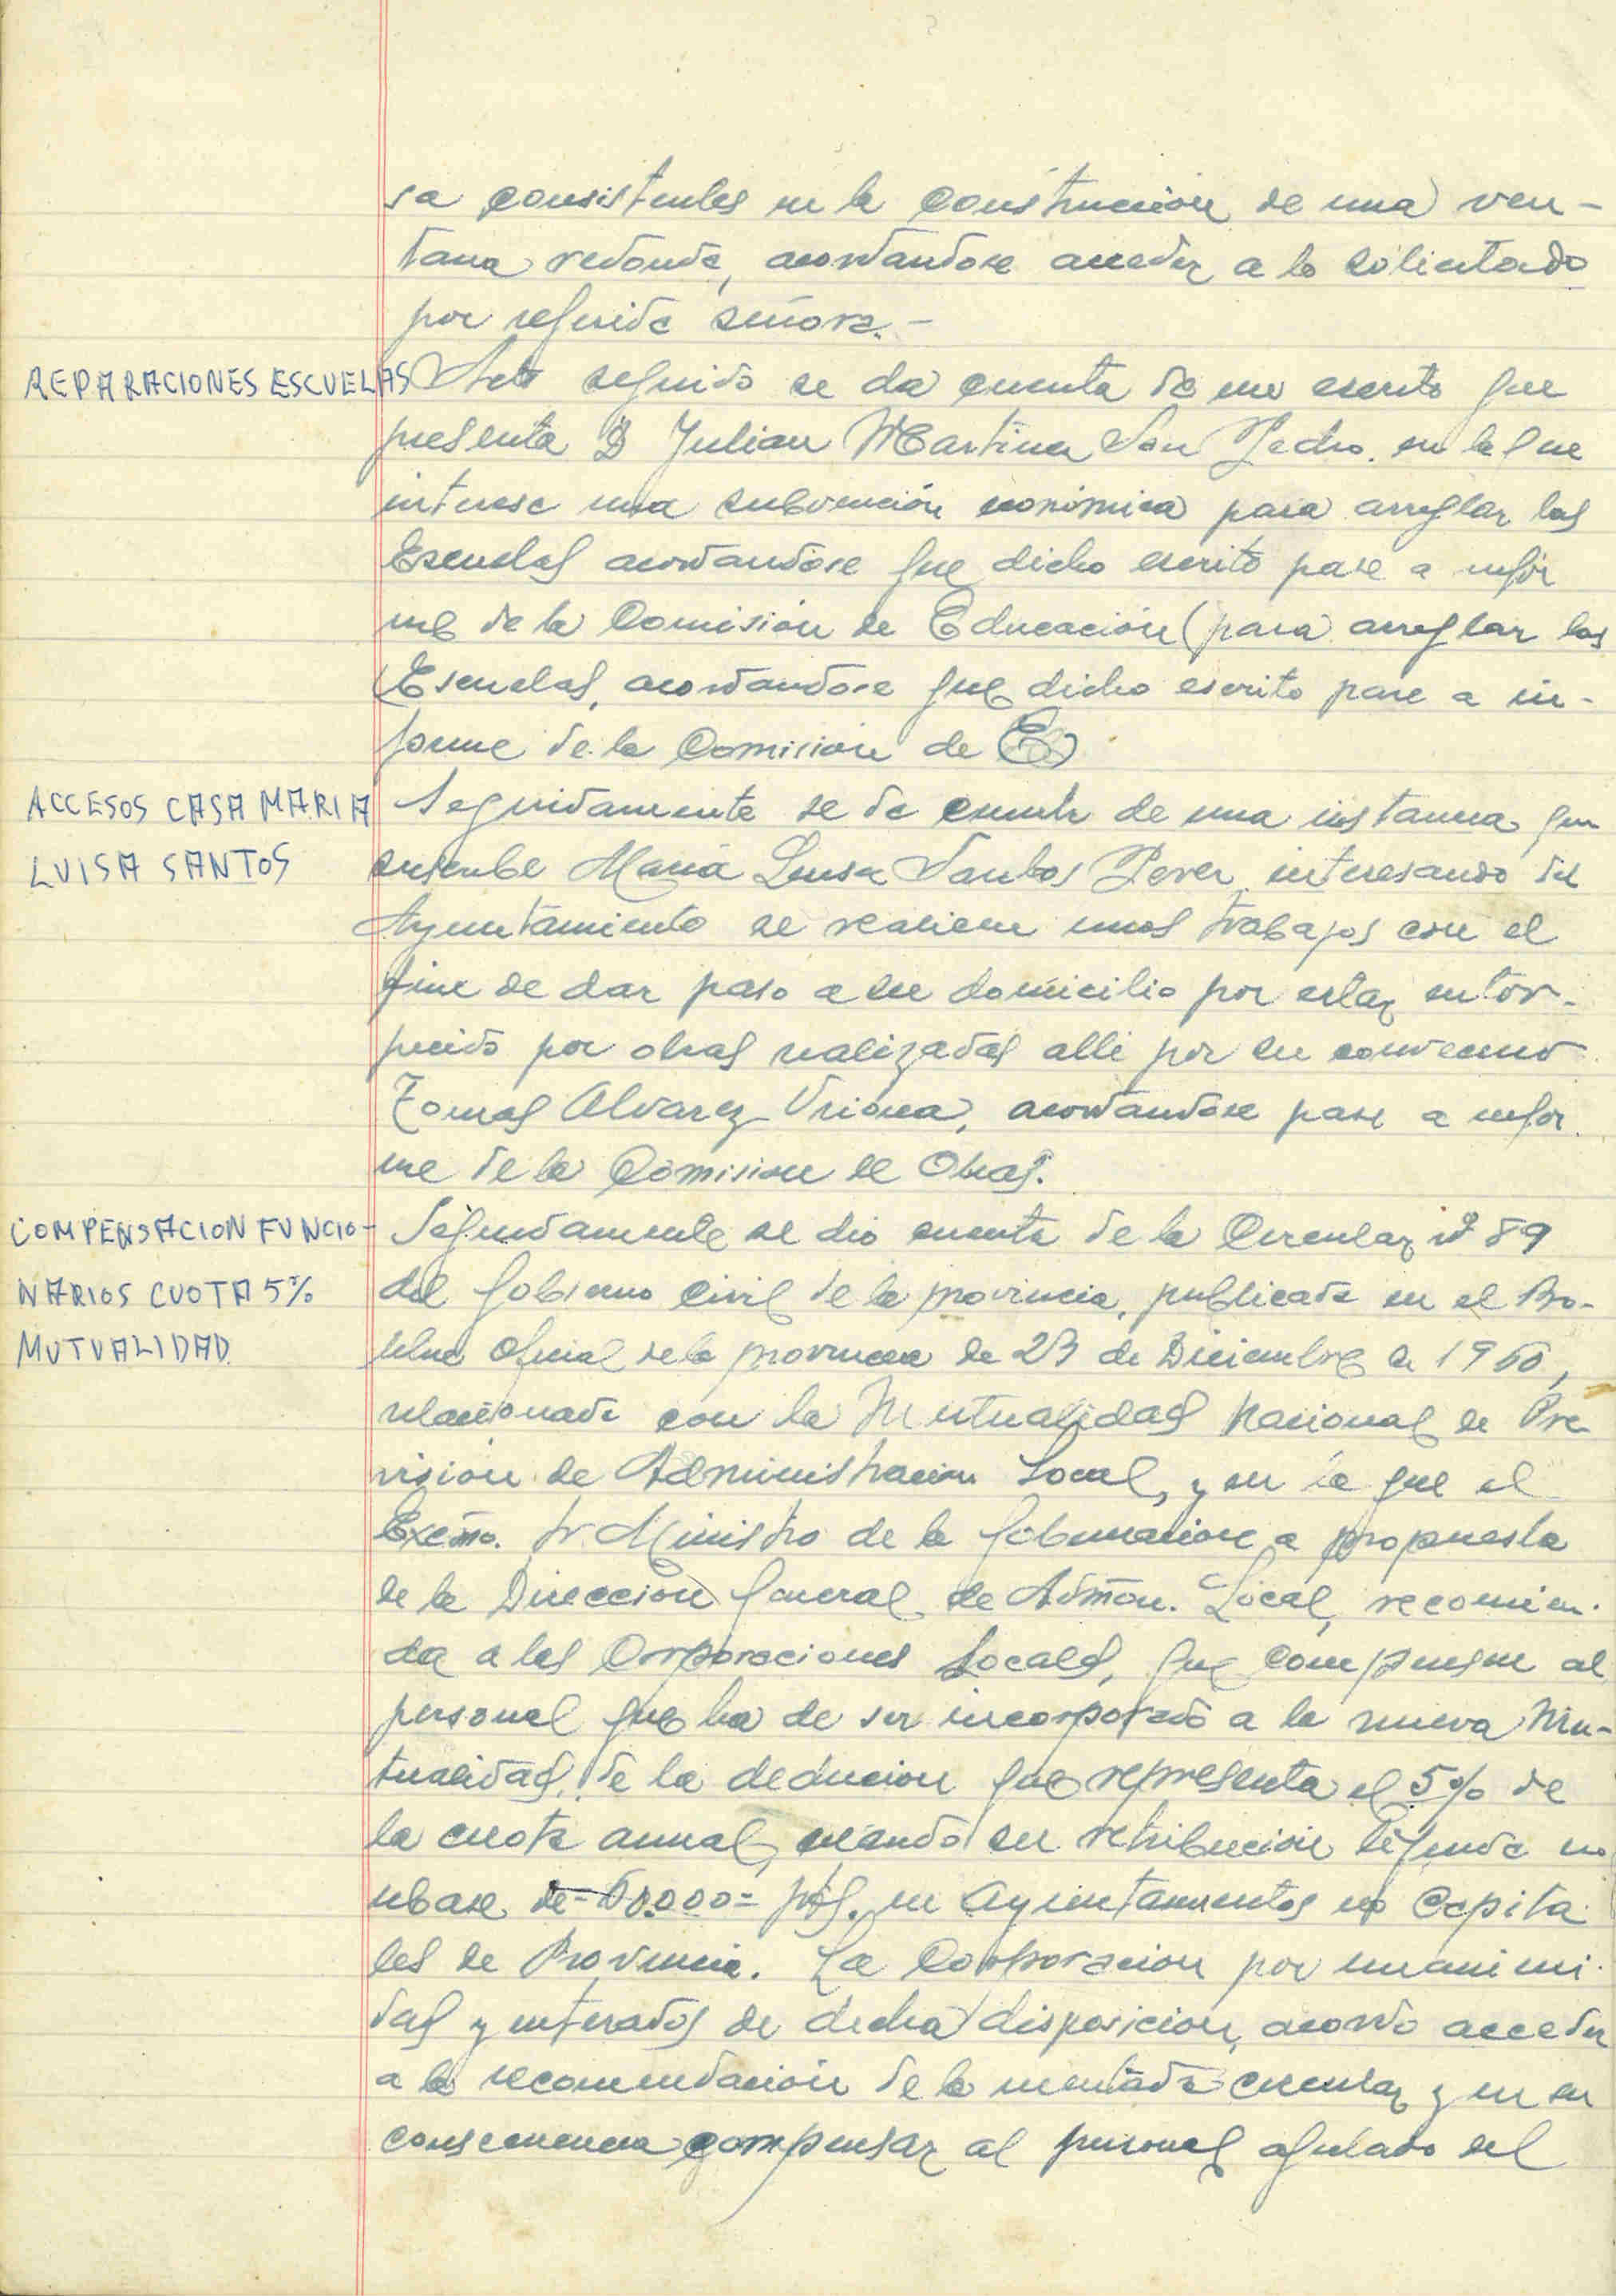 sa consistentes en la construcción de una ven-
tana redonda, acordandose acceder a lo solicitado
por referida señora.-
REPARACIONES ESCUELAS Acto seguido se da cuenta de un escrito que
presenta D Julian Martinez San Pedro. en la que
interesa una subvención económica para arreglar las
Escuelas acordandose que dicho escrito pase a infor
me de la Comisión de Educación (para arreglar las
Escuelas, acordandose que dicho escrito pase a in-
forme de la Comision de E)
ACCESOS CASA MARIA Seguidamente se da cuenta de una instancia que
LUISA SANTOS suscribe Maria Luisa Santos Perez, interesando del
Ayuntamiento se realicen unos trabajos con el
fin de dar paso a su domicilio por estar entor-
pecido por obras realizadas alli por su convecino
Tomas Alvarez, acordandose pase a infor
me de la Comision de Obras.
COMPENSACION FUNCIO- Seguidamente se dio cuenta de la Circular nº 89
NARIOS CUOTA 5% del Gobierno Civil de la provincia, publicada en el Bo-
MUTUALIDAD. letin Oficial de la provincia de 23 de Diciembre de 1960,
relacionada con la Mutualidad Nacional de Pre
vision de Administracion Local, y en la que el
Excmo. Sr Ministro de la Gobernacion a propuesta
de la Direccion General de Admon. Local, recomien-
da a las Corporaciones Locales, que compensen al
personal que ha de ser incorporado a la nueva Mu-
tualidad, de la deducion que representa el 5% de
la cuota annal, cuando su retribucion liquida no
rebase de = 60.000= pts. en Ayuntamientos no Capita
les de Provincia. La Corporacion por unanimi-
dad y enterados de dicha disposicion, acordo acceder
a la recomendación de la mentada circular y en su
consecuencia compensar al personal afectado del